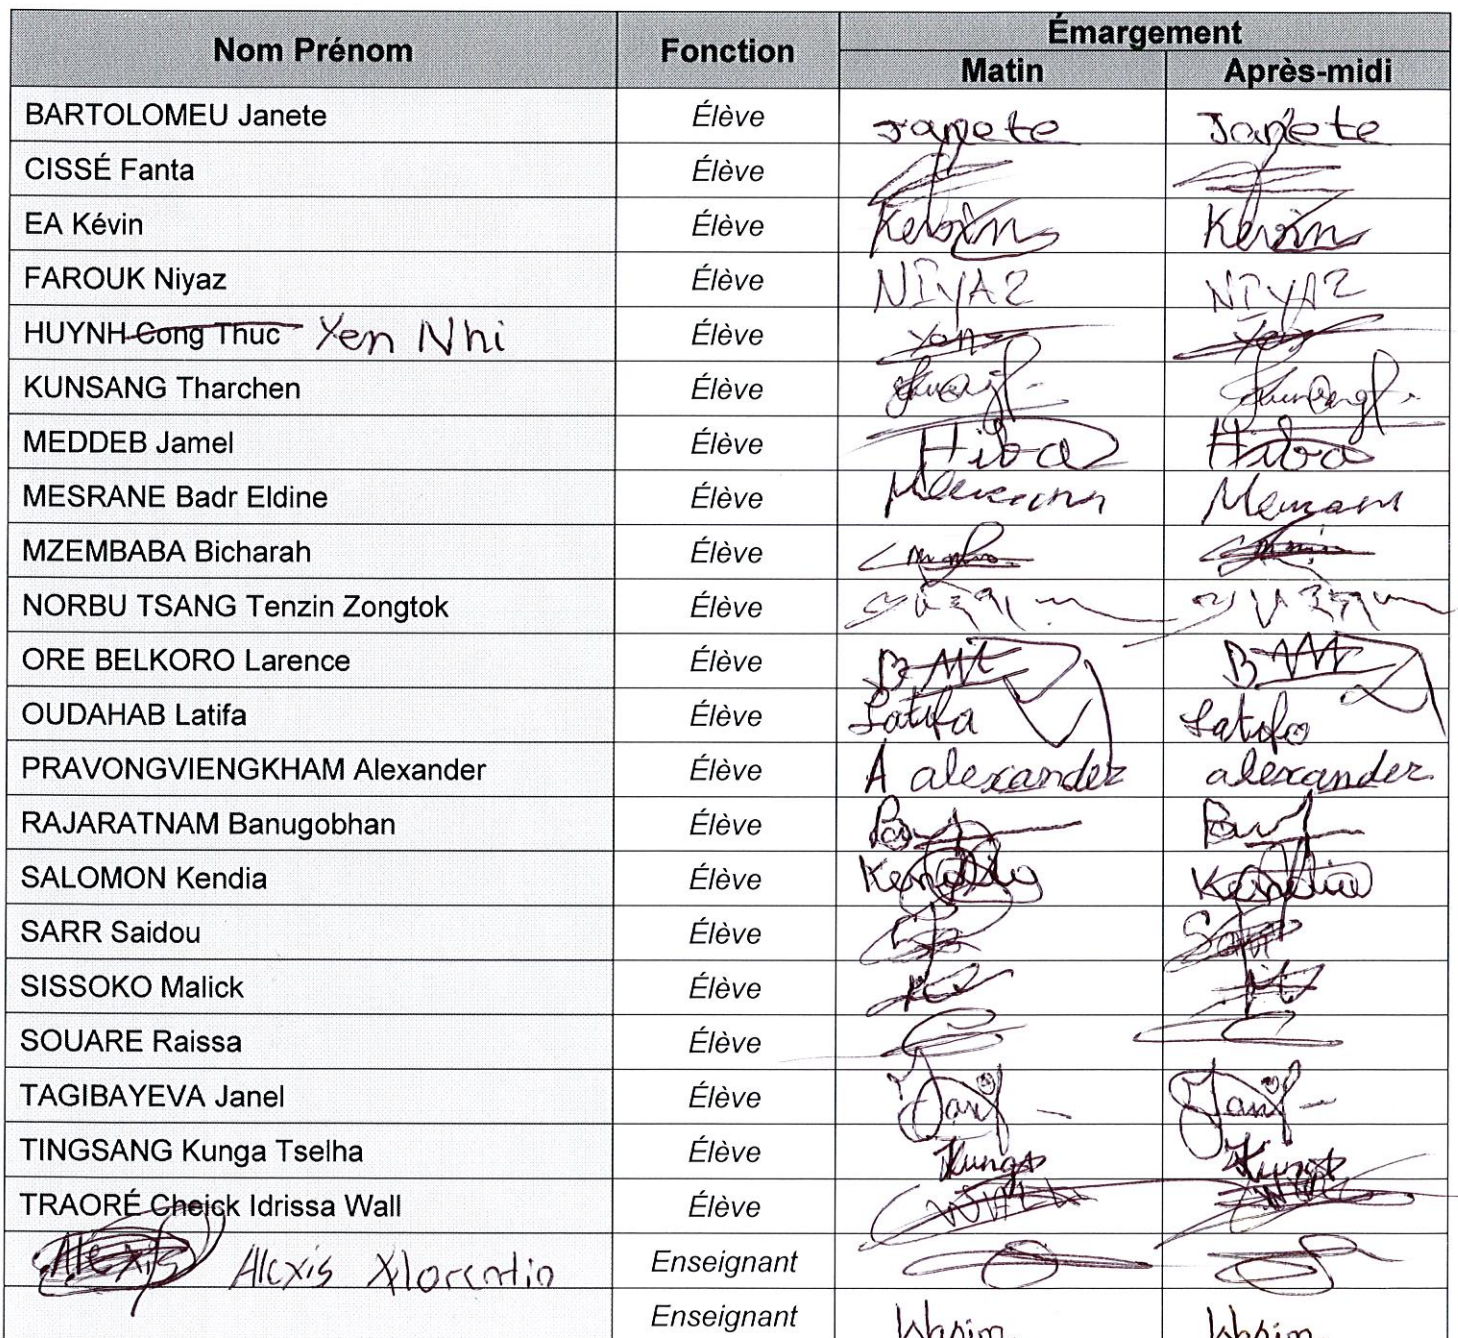 Nom Prénom Fonction Émargement
Matin Après-midi
BARTOLOMEU Janete Élève Janete Janete
CISSÉ Fanta Élève
EA Kévin Élève Kevin Kevin
FAROUK Niyaz Élève NIYAZ NIYAZ
HUYNH Cong Thuc Yen Nhi Élève Yen Yen
KUNSANG Tharchen Élève
MEDDEB Jamel Élève Hiba Hiba
MESRANE Badr Eldine Élève
MZEMBABA Bicharah Élève
NORBU TSANG Tenzin Zongtok Élève
ORE BELKORO Larence Élève
OUDAHAB Latifa Élève Latifa Latifa
PRAVONGVIENGKHAM Alexander Élève A alexander alexander
RAJARATNAM Banugobhan Élève
SALOMON Kendia Élève Kendia Kendia
SARR Saidou Élève
SISSOKO Malick Élève
SOUARE Raissa Élève
TAGIBAYEVA Janel Élève
TINGSANG Kunga Tselha Élève Kunga Kunga
TRAORÉ Cheick Idrissa Wall Élève
Alexis Alexis Enseignant
Enseignant Wasim Wasim